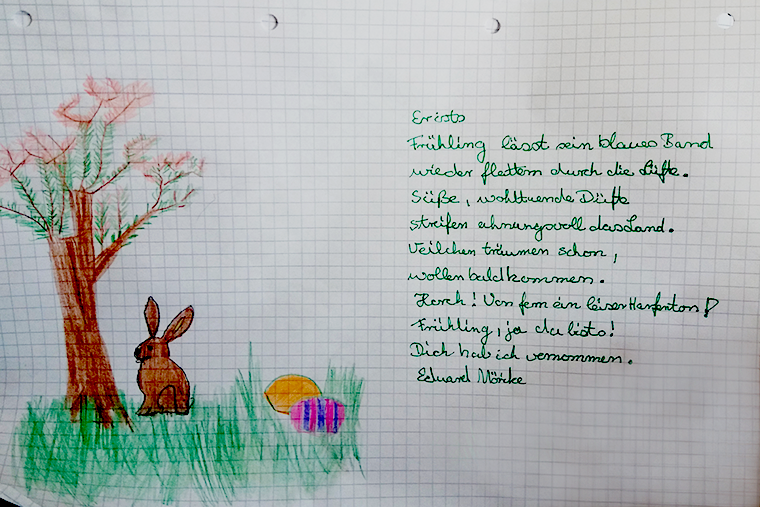 Er ists
Frühling lässt sein blaues Band
wieder flattern durch die Lüfte.
Süße, wohltuende Düfte
streifen ahnungsvoll das Land.
Veilchen träumen schon,
wollen bald kommen.
Horch! Von fern ein leiser Harfenton!
Frühling, ja du bists!
Dich hab ich vernommen.
Eduard Mörike